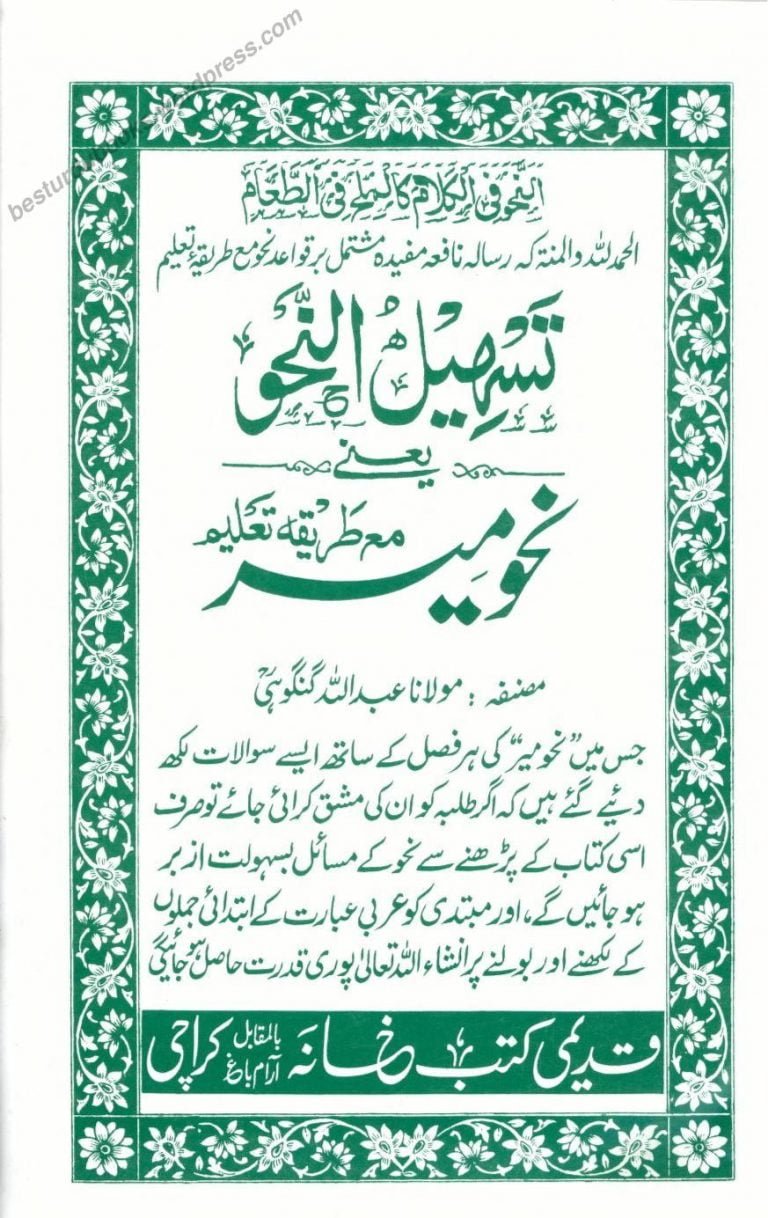 besturdubooks.wordpress.com
النحو فی الکلام کالملح فی الطعام
الحمد للہ والمنۃ کہ رسالہ نافعہ مفیدہ مشتمل بر قواعد نحو مع طریقۂ تعلیم
تَسْهِیْلُ النَّحْو
یعنی
نحو میر مع طریقہ تعلیم
مصنفہ : مولانا عبد اللہ گنگوہیؒ
جس میں ”نحو میر“ کی ہر فصل کے ساتھ ایسے سوالات لکھ
دئیے گئے ہیں کہ اگر طلبہ کو ان کی مشق کرائی جائے تو صرف
اسی کتاب کے پڑھنے سے نحو کے مسائل بسہولت از بر
ہو جائیں گے، اور مبتدی کو عربی عبارت کے ابتدائی جملوں
کے لکھنے اور بولنے پر انشاء اللہ تعالیٰ پوری قدرت حاصل ہو جائیگی
قدیمی کتب خانہ بالمقابل آرام باغ کراچی